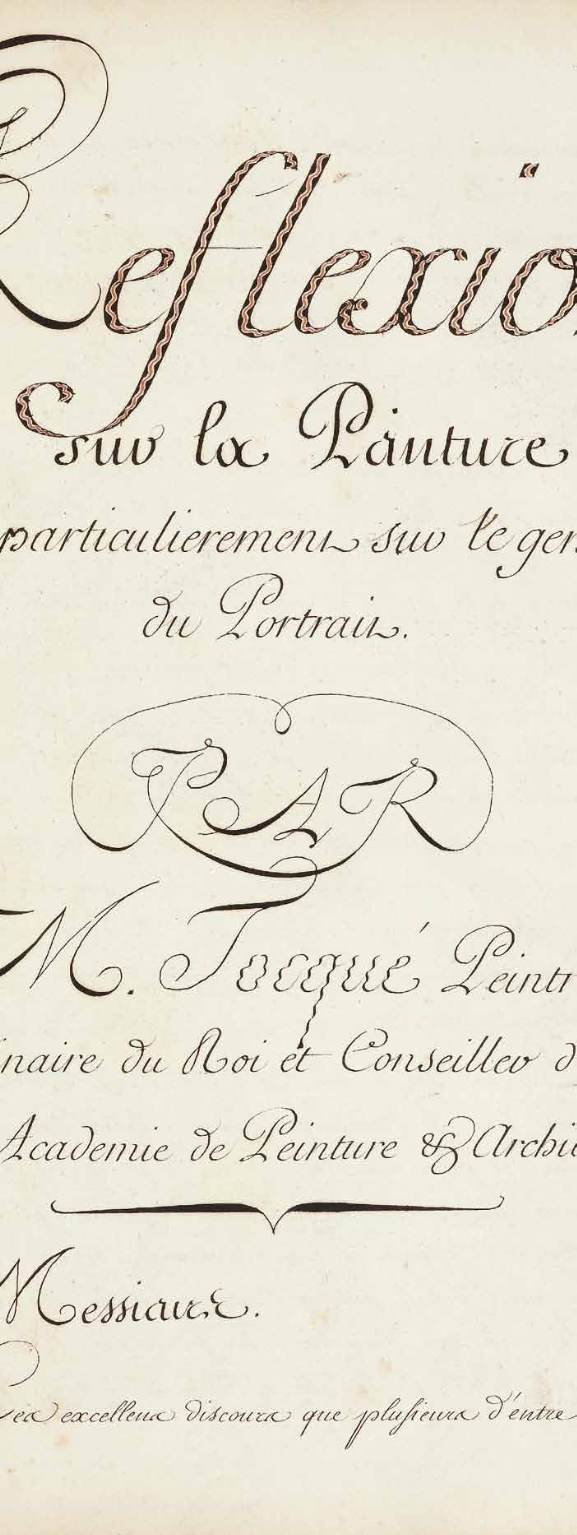 Reflexïo
sur la Painture
particulierement sur le gen
du Portrait.
PAR
M. Tocqué Peintr
inaire du Roi et Conseiller d
Academie de Peinture & Archi
Messieurs.
Les excellens discours que plusieurs d'entre